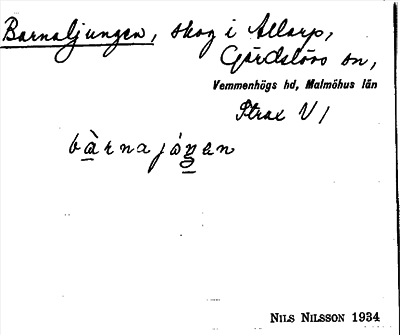 Barnaljungen, skog i Allarp,
Gärdslövs sn,
Vemmenhögs hd, Malmöhus län
Strax V /
bàrnajáŋan
NILS NILSSON 1934